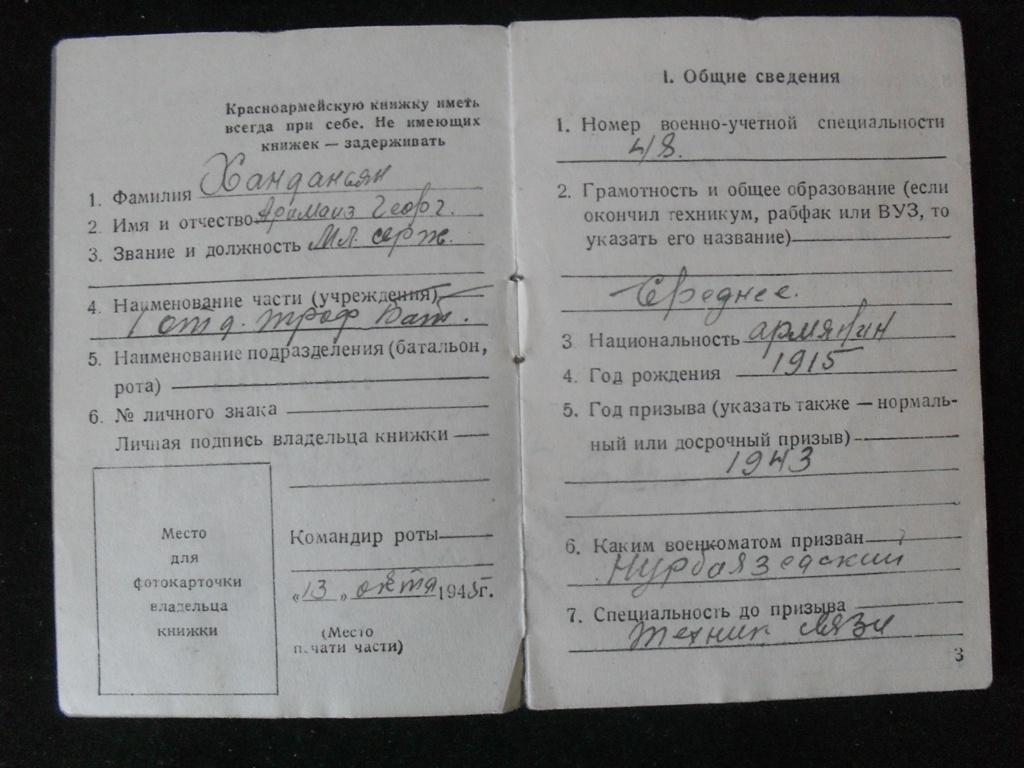 Красноармейскую книжку иметь
всегда при себе. Не имеющих
книжек — задерживать
1. Фамилия Ханданян
2. Имя и отчество Георг.
3. Звание и должность Мл. серж.
4. Наименование части (учреждения)
1 отд. троф бат.
5. Наименование подразделения (батальон,
рота)
6. № личного знака
Личная подпись владельца книжки
Место
для
фотокарточки
владельца
книжки
Командир роты
«13» октя 1945г.
(Место
печати части)
1. Общие сведения
1. Номер военно-учетной специальности
48.
2. Грамотность и общее образование (если
окончил техникум, рабфак или ВУЗ, то
указать его название)
Среднее.
3 Национальность армянин
4. Год рождения 1915
5. Год призыва (указать также — нормаль-
ный или досрочный призыв)
1943
6. Каким военкоматом призван
Нурбаязедский
7. Специальность до призыва
техник связи
3